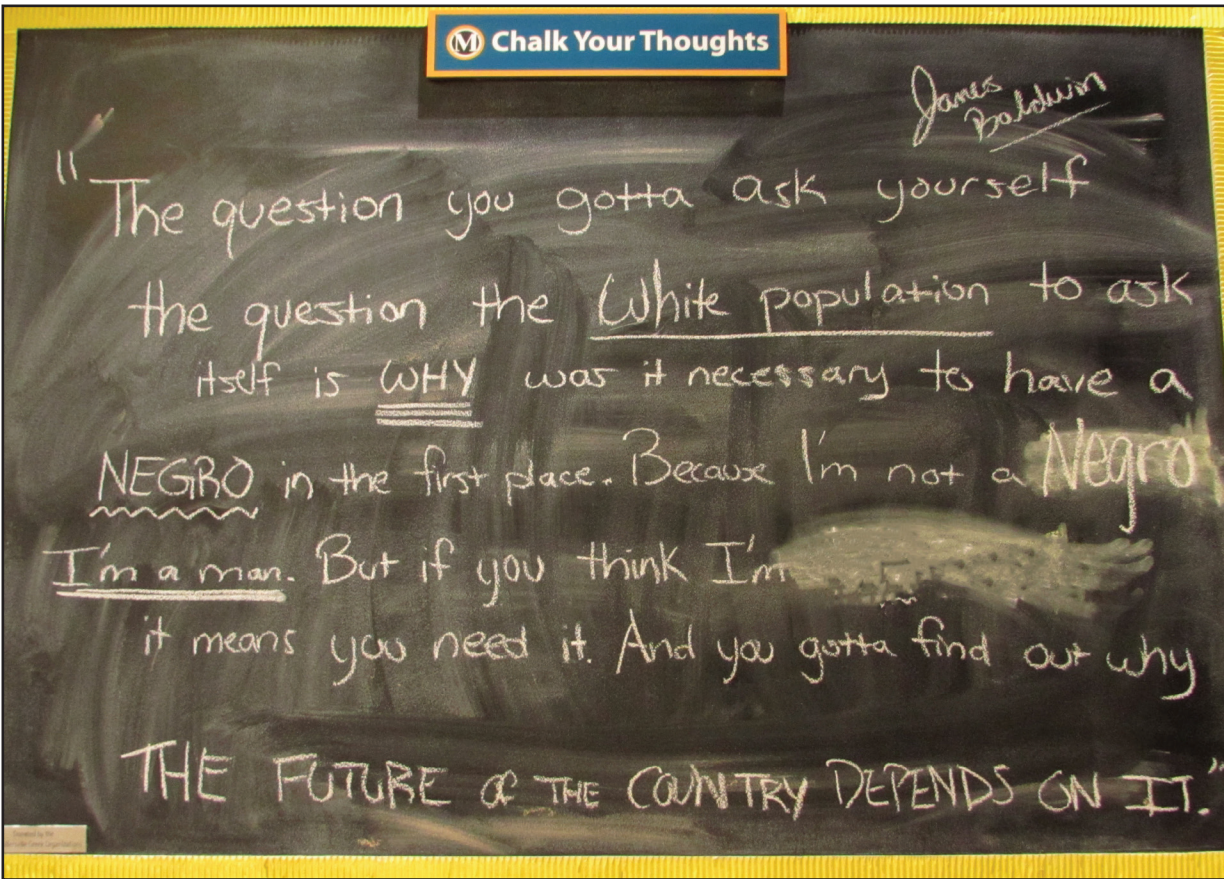 M Chalk Your Thoughts
James
Baldwin
"The question you gotta ask yourself
the question the White population to ask
itself is WHY was it necessary to have a
NEGRO in the first place. Because I'm not a Negro
I'm a man. But if you think I'm
it means you need it. And you gotta find out why
THE FUTURE of THE COUNTRY DEPENDS ON IT."
Donated by the